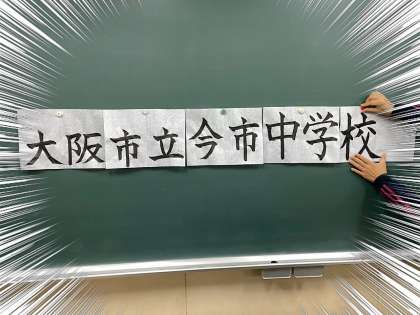 大阪市立今市中学校